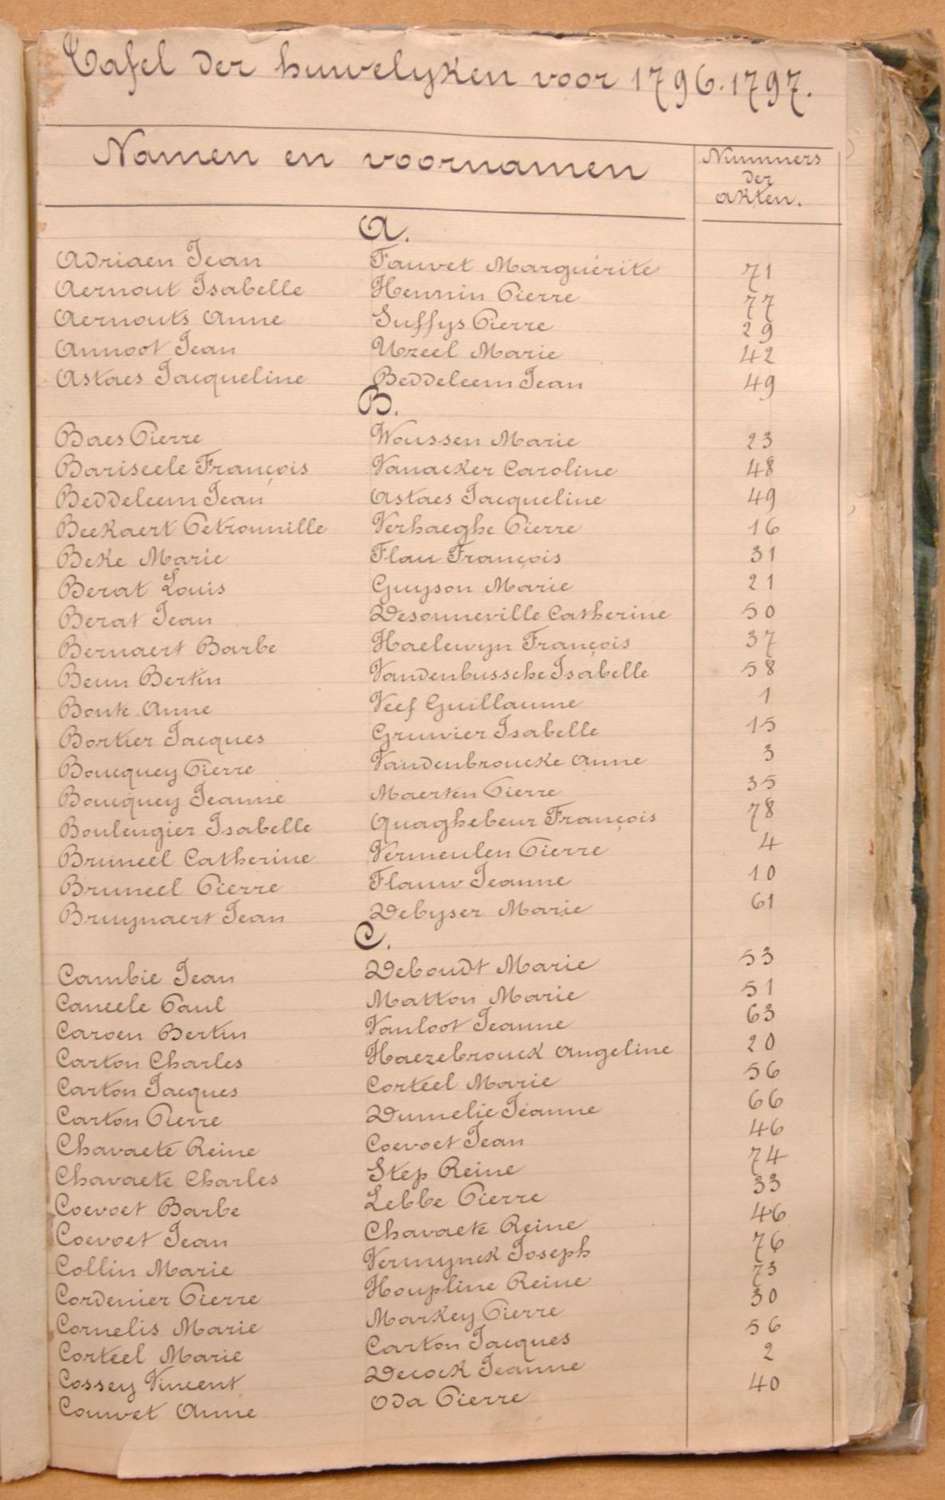 Tafel der huwelyken voor 1796.1797.
Namen en voornamen Nummers der akten.
A.
Adriaen Jean Fauvet Marguérite 71
Aernout Isabelle Hennin Pierre 77
Aernouts Anne Suffys Pierre 29
Annoot Jean Uzeel Marie 42
Astaes Jacqueline Beddeleem Jean 49
B.
Baes Pierre Woussen Marie 23
Bariseele François Vanacker Caroline 48
Beddeleem Jean Astaes Jacqueline 49
Beekaert Petronnille Verhaeghe Pierre 16
Beke Marie Flau François 31
Berat Louis Guyson Marie 21
Berat Jean Desonneville Catherine 50
Bernaert Barbe Haelewyn François 37
Beun Bertin Vandenbussche Isabelle 58
Bonte Anne Veef Guillaume 1
Bortier Jacques Gruwier Isabelle 15
Boucquey Pierre Vandenbroucke Anne 3
Boucquey Jeanne Maerten Pierre 35
Boulengier Isabelle Quaghebeur François 78
Bruneel Catherine Vermeulen Pierre 4
Bruneel Pierre Flauw Jeanne 10
Bruynaert Jean Debyser Marie 61
C.
Cambie Jean Deboudt Marie 53
Caneele Paul Matton Marie 51
Caroen Bertin Vanloot Jeanne 63
Carton Charles Haezebrouck Angeline 20
Carton Jacques Corteel Marie 56
Carton Pierre Dumelie Jeanne 66
Chavaete Reine Coevoet Jean 46
Chavaete Charles Step Reine 74
Coevoet Barbe Lebbe Pierre 33
Coevoet Jean Chavaete Reine 46
Collin Marie Vermynck Joseph 76
Cordenier Pierre Houpline Reine 73
Cornelis Marie Markey Pierre 30
Corteel Marie Carton Jacques 56
Cossey Vincent Decock Jeanne 2
Couwet Anne Oda Pierre 40